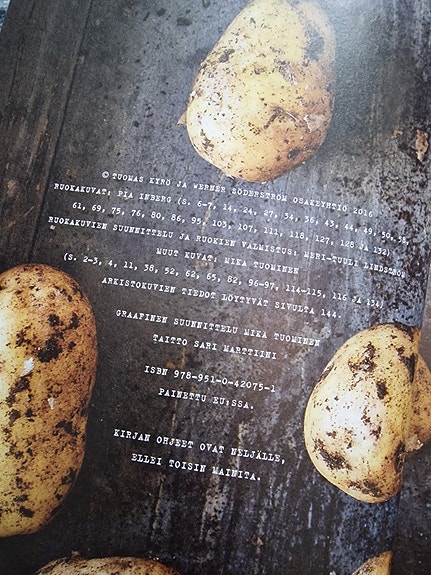 © TUOMAS KYRÖ JA WERNER SÖDERSTRÖM OSAKEYHTIÖ 2016
RUOKAKUVAT: PIA INBERG (S. 6-7, 14, 24, 27, 34, 36, 43, 44, 49, 50, 58,
61, 69, 75, 76, 80, 86, 95, 105, 107, 111, 118, 127, 128 JA 132)
RUOKAKUVIEN SUUNNITTELU JA RUOKIEN VALMISTUS: MERI-TUULI LINDSTRÖM
MUUT KUVAT: MIKA TUOMINEN
(S. 2-3, 4, 11, 38, 52, 62, 65, 82, 96-97, 114-115, 116 JA 134)
ARKISTOKUVIEN TIEDOT LÖYTYVÄT SIVULTA 144.
GRAAFINEN SUUNNITTELU MIKA TUOMINEN
TAITTO SARI MARTTIINI
ISBN 978-951-0-42075-1
PAINETTU EU:SSA.
KIRJAN OHJEET OVAT NELJÄLLE,
ELLEI TOISIN MAINITA.